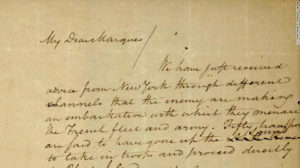 My Dear Marquis/
We have just received
advice from New York through different
channels that the enemy are making
an embarkation with which they menace
the French fleet and army. Fifty transports
are said to have gone up the Sound
to take in troops and proceed directly